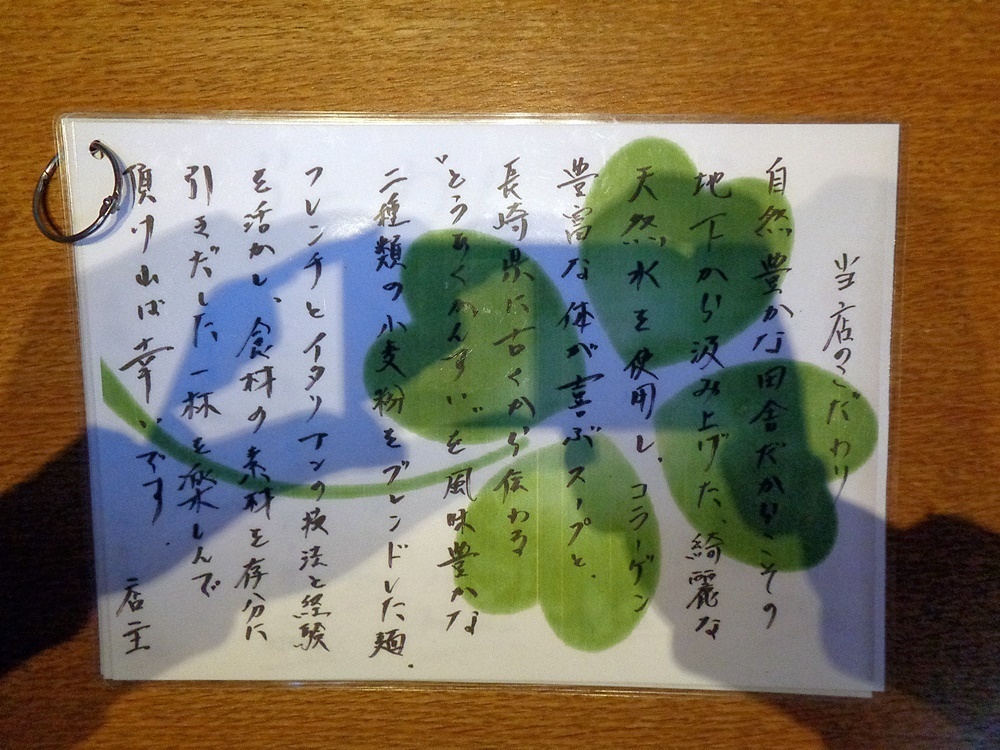 当店のこだわり
自然豊かな田舎だからこその
地下から汲み上げた、綺麗な
天然水を使用し、コラーゲン
豊富な体が喜ぶスープと、
長崎県に古くから伝わる
"とうあくかんすい"を風味豊かな
二種類の小麦粉をブレンドした麺、
フレンチとイタリアンの技法と経験
を活かし、食材の素材を存分に
引きだした一杯を楽しんで
頂ければ幸いです。
店主